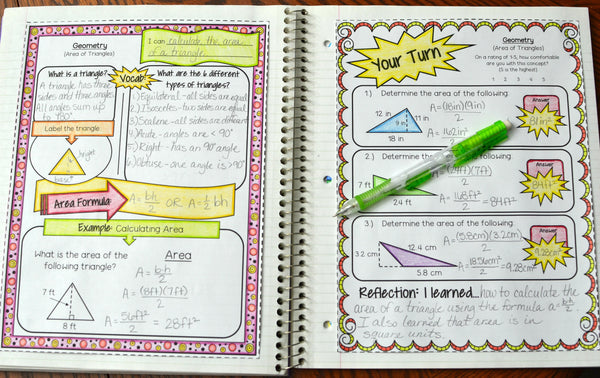 Geometry
(Area of Triangles)
I can calculate the area
of a triangle.
What is a triangle?
A triangle has three
sides and three angles.
All angles sum up
to 180°.
Label the triangle.
height
base
Vocab
What are the 6 different
types of triangles?
1) Equilateral - all sides are equal
2) Isosceles - two sides are equal
3) Scalene - all sides are different
4) Acute - angles are < 90°
5) Right - has an 90° angle
6) Obtuse - one angle is > 90°
Area Formula:
A = bh/2 OR A = ½ bh
Example: Calculating Area
What is the area of the
following triangle?
7 ft
8 ft
Area
A = b·h/2
A = (8ft)(7ft)/2
A = 56ft²/2 = 28ft²
Your Turn
Geometry
(Area of Triangles)
On a rating of 1-5, how comfortable
are you with this concept?
(5 is the highest)
1 2 3 4 5
1.) Determine the area of the following
12 in
9 in
11 in
18 in
A = (18in)(9in)/2
A = 162in²/2
Answer
81in²
2.) Determine the area of the following
7 ft
24 ft
(7ft)/2
A = 168ft²/2 = 84ft²
Answer
84ft²
3.) Determine the area of the following
3.2 cm
12.4 cm
5.8 cm
A = (5.8cm)(3.2cm)/2
A = 18.56cm²/2 = 9.28cm²
Answer
9.28cm²
Reflection: I learned...how to calculate the
area of a triangle using the formula a = b·h/2.
I also learned that area is in
square units.